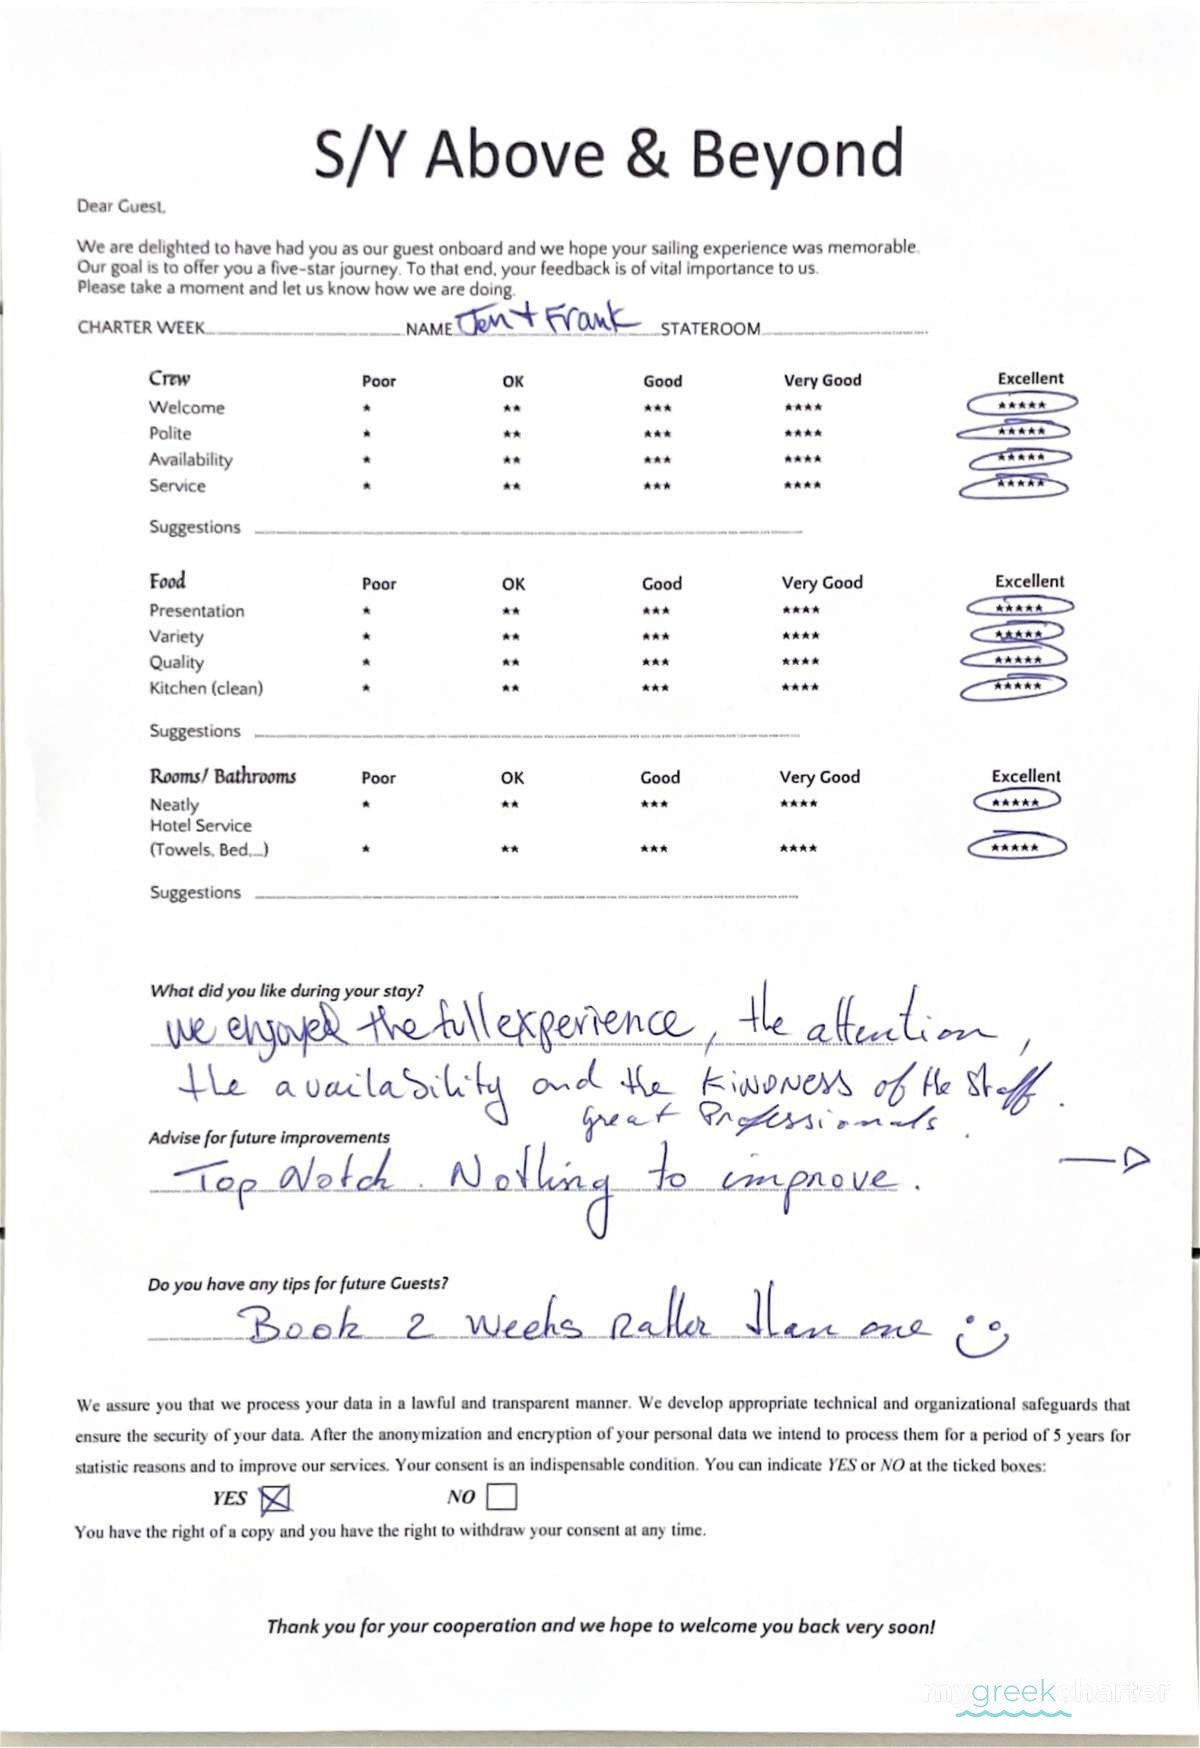 S/Y Above & Beyond
Dear Guest,
We are delighted to have had you as our guest onboard and we hope your sailing experience was memorable.
Our goal is to offer you a five-star journey. To that end, your feedback is of vital importance to us.
Please take a moment and let us know how we are doing.
CHARTER WEEK NAME Jen + Frank STATEROOM
Crew Poor OK Good Very Good Excellent
Welcome * ** *** **** *****
Polite * ** *** **** *****
Availability * ** *** **** *****
Service * ** *** **** *****
Suggestions
Food Poor OK Good Very Good Excellent
Presentation * ** *** **** *****
Variety * ** *** **** *****
Quality * ** *** **** *****
Kitchen (clean) * ** *** **** *****
Suggestions
Rooms/ Bathrooms Poor OK Good Very Good Excellent
Neatly * ** *** **** *****
Hotel Service
(Towels, Bed,...) * ** *** **** *****
Suggestions
What did you like during your stay?
We enjoyed the full experience, the attention,
the availability and the KINDNESS of the Staff.
Great Professionals.
Advise for future improvements
Top Notch. Nothing to improve.
Do you have any tips for future Guests?
Book 2 weeks Rather than one
We assure you that we process your data in a lawful and transparent manner. We develop appropriate technical and organizational safeguards that
ensure the security of your data. After the anonymization and encryption of your personal data we intend to process them for a period of 5 years for
statistic reasons and to improve our services. Your consent is an indispensable condition. You can indicate YES or NO at the ticked boxes:
YES NO
You have the right of a copy and you have the right to withdraw your consent at any time.
Thank you for your cooperation and we hope to welcome you back very soon!
mygreekcharter